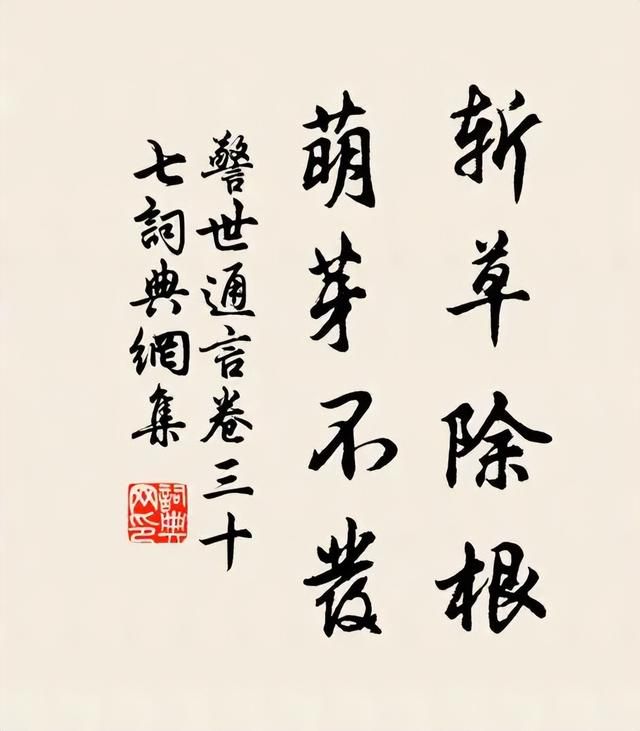 斩草除根
萌芽不發
警世通言卷三十
七詞典網集
詞典
网印